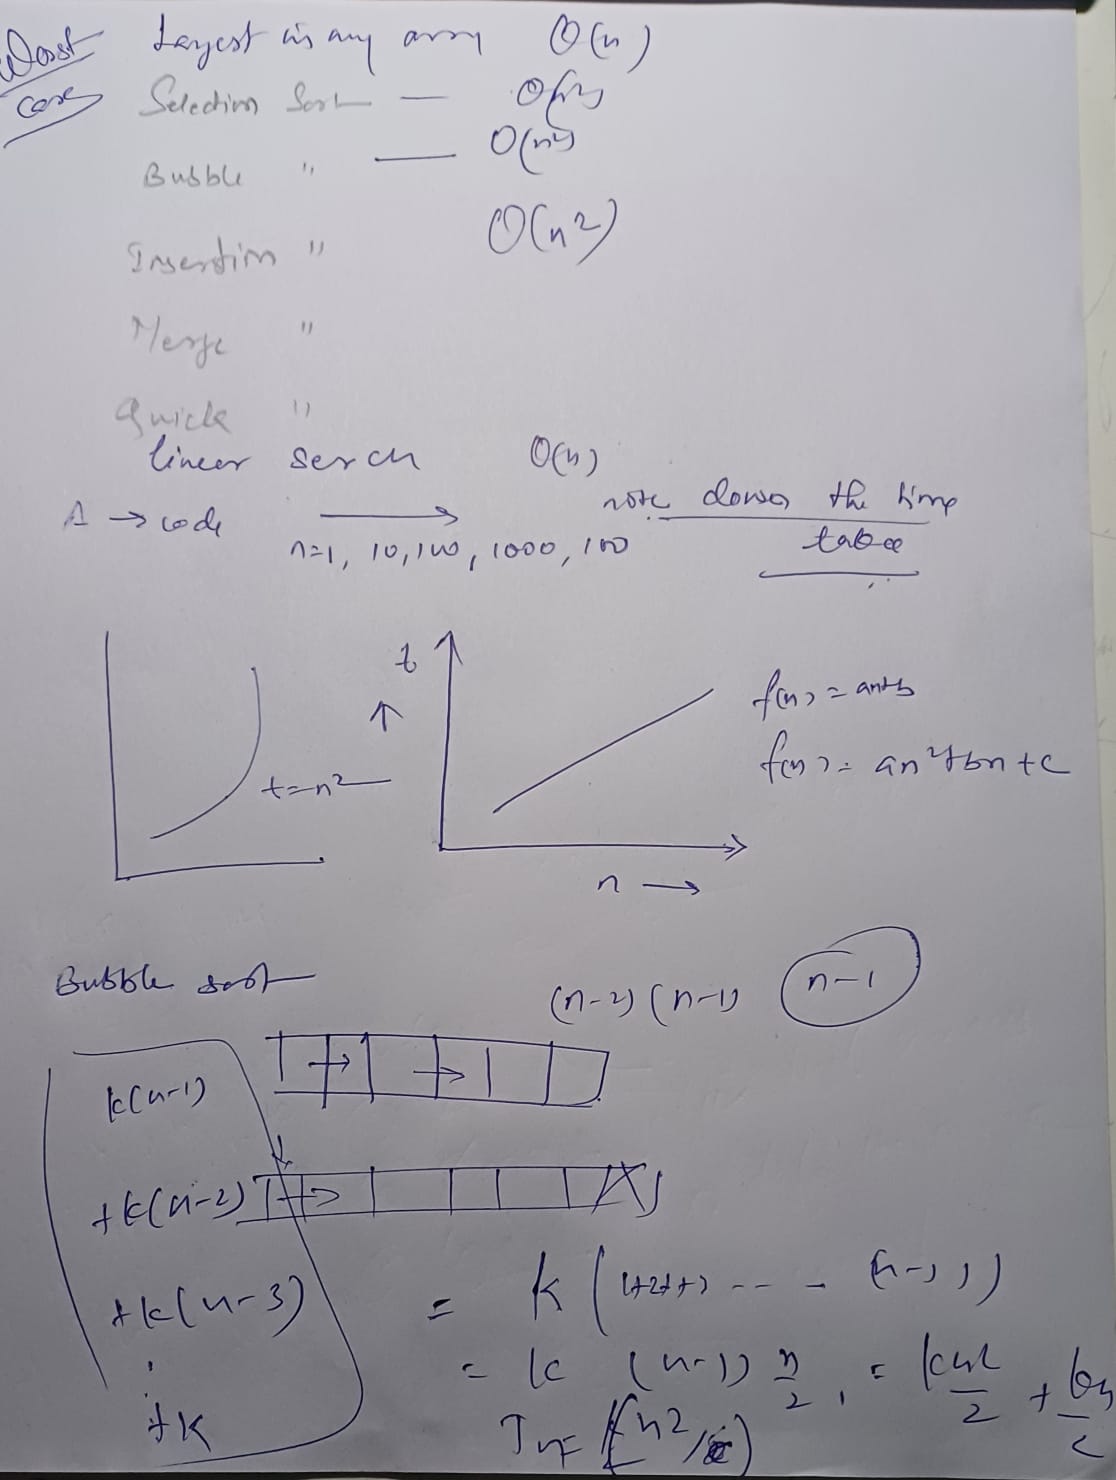 Worst case
Largest in any array O(n)
Selection Sort —
Bubble " — O(n²)
Insertion " O(n2)
Merge "
Quick "
linear serch O(n)
A → code → note down the time
n=1, 10, 100, 1000, 100 table
t ↑
t=n² f(n) = an+b
f(n) = an²+bn+c
n →
Bubble sort (n-2) (n-1) n-1
k(n-1)
+k(n-2)
+k(n-3) = k (1+2+3 --- (n-1))
= k (n-1) n/2, =
+k